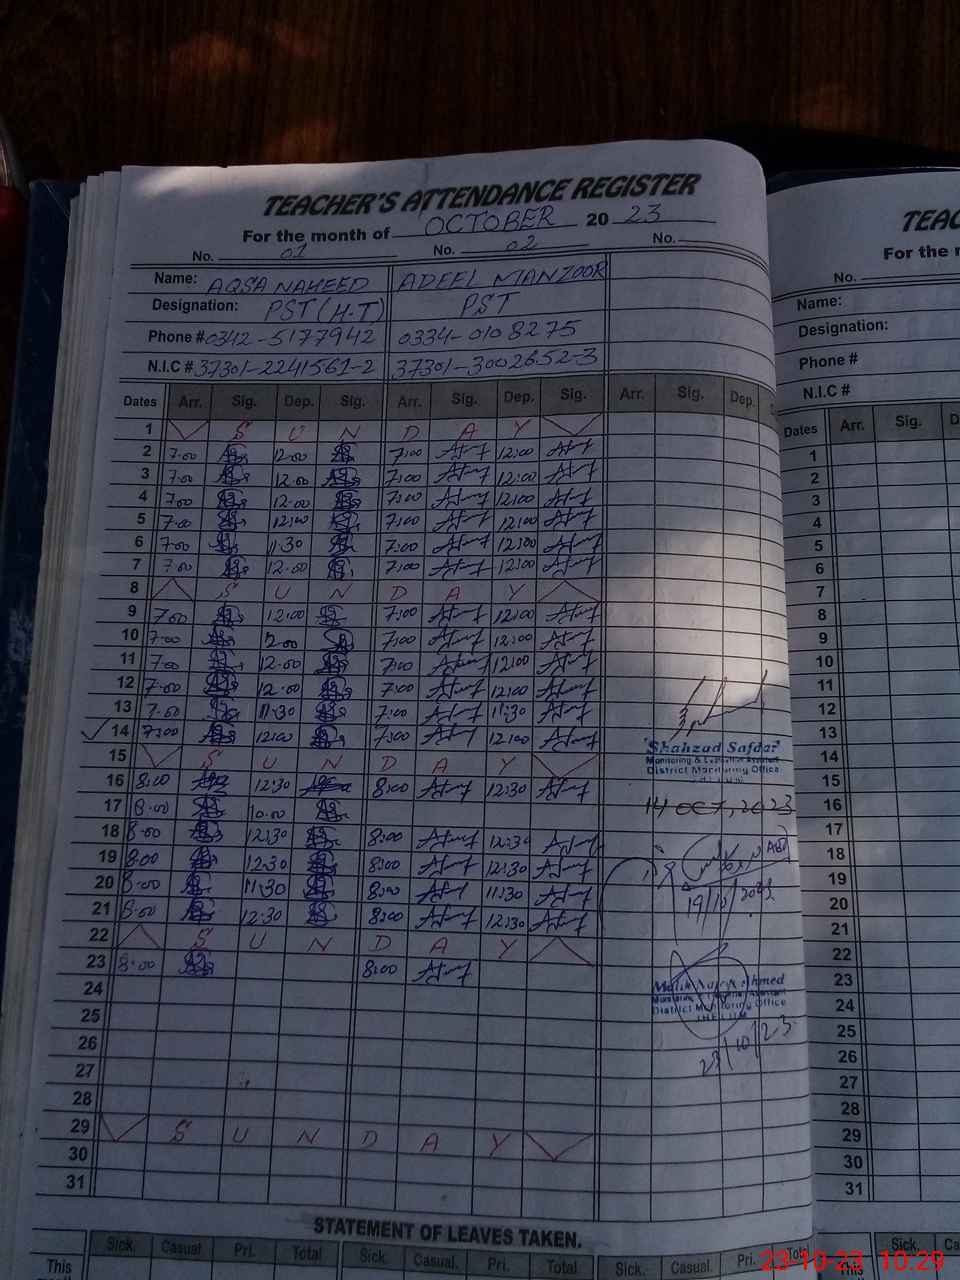 TEACHER'S ATTENDANCE REGISTER
For the month of OCTOBER 20 23
No. 01 No. 02 No.
Name: AQSA NAHEED ADEEL MANZOOR
Designation: PST (H.T) PST
Phone # 0342-5177942 0334-0108275
N.I.C # 37301-2241561-2 37301-3002652-3
Dates Arr. Sig. Dep. Sig. Arr. Sig. Dep. Sig. Arr. Sig. Dep.
1 S U N D A Y
2 7.00 12.00 7:00 12:00
3 7.00 12.00 7:00 12:00
4 7.00 12.00 7:00 12:00
5 7.00 12:00 7:00 12:00
6 7.00 11.30 7:00 12:00
7 7.00 12.00 7:00 12:00
8 S U N D A Y
9 7.00 12:00 7:00 12:00
10 7.00 7:00 12:00
11 7.00 12.00 7:00 12:00
12 7.00 12.00 7:00 12:00
13 7.00 11.30 7:00 11:30
14 7:00 12:00 7:00 12:00
15 S U N D A Y
16 8:00 12:30 8:00 12:30
17 8.00 10.00
18 8.00 12:30 8:00 12:30
19 8:00 12.30 8:00 12:30
20 8.00 11.30 8:00 11:30
21 8.00 12.30 8:00 12:30
22 S U N D A Y
23 8.00 8:00
24
25
26
27
28
29 S U N D A Y
30
31
Shahzad Safdar
Monitoring & Evaluation Assistant
District Monitoring Office
JHELUM
14 OCT, 2023
19/10/2023
Malik Ahmed
District Monitoring Office
JHELUM
23/10/23
STATEMENT OF LEAVES TAKEN.
Sick. Casual. Pri. Total Sick. Casual. Pri. Total Sick. Casual. Pri. Total
This
TEAC
For the
No.
Name:
Designation:
Phone #
N.I.C #
Dates Arr. Sig. D
1
2
3
4
5
6
7
8
9
10
11
12
13
14
15
16
17
18
19
20
21
22
23
24
25
26
27
28
29
30
31
Sick. Ca
This
23-10-23 10:29